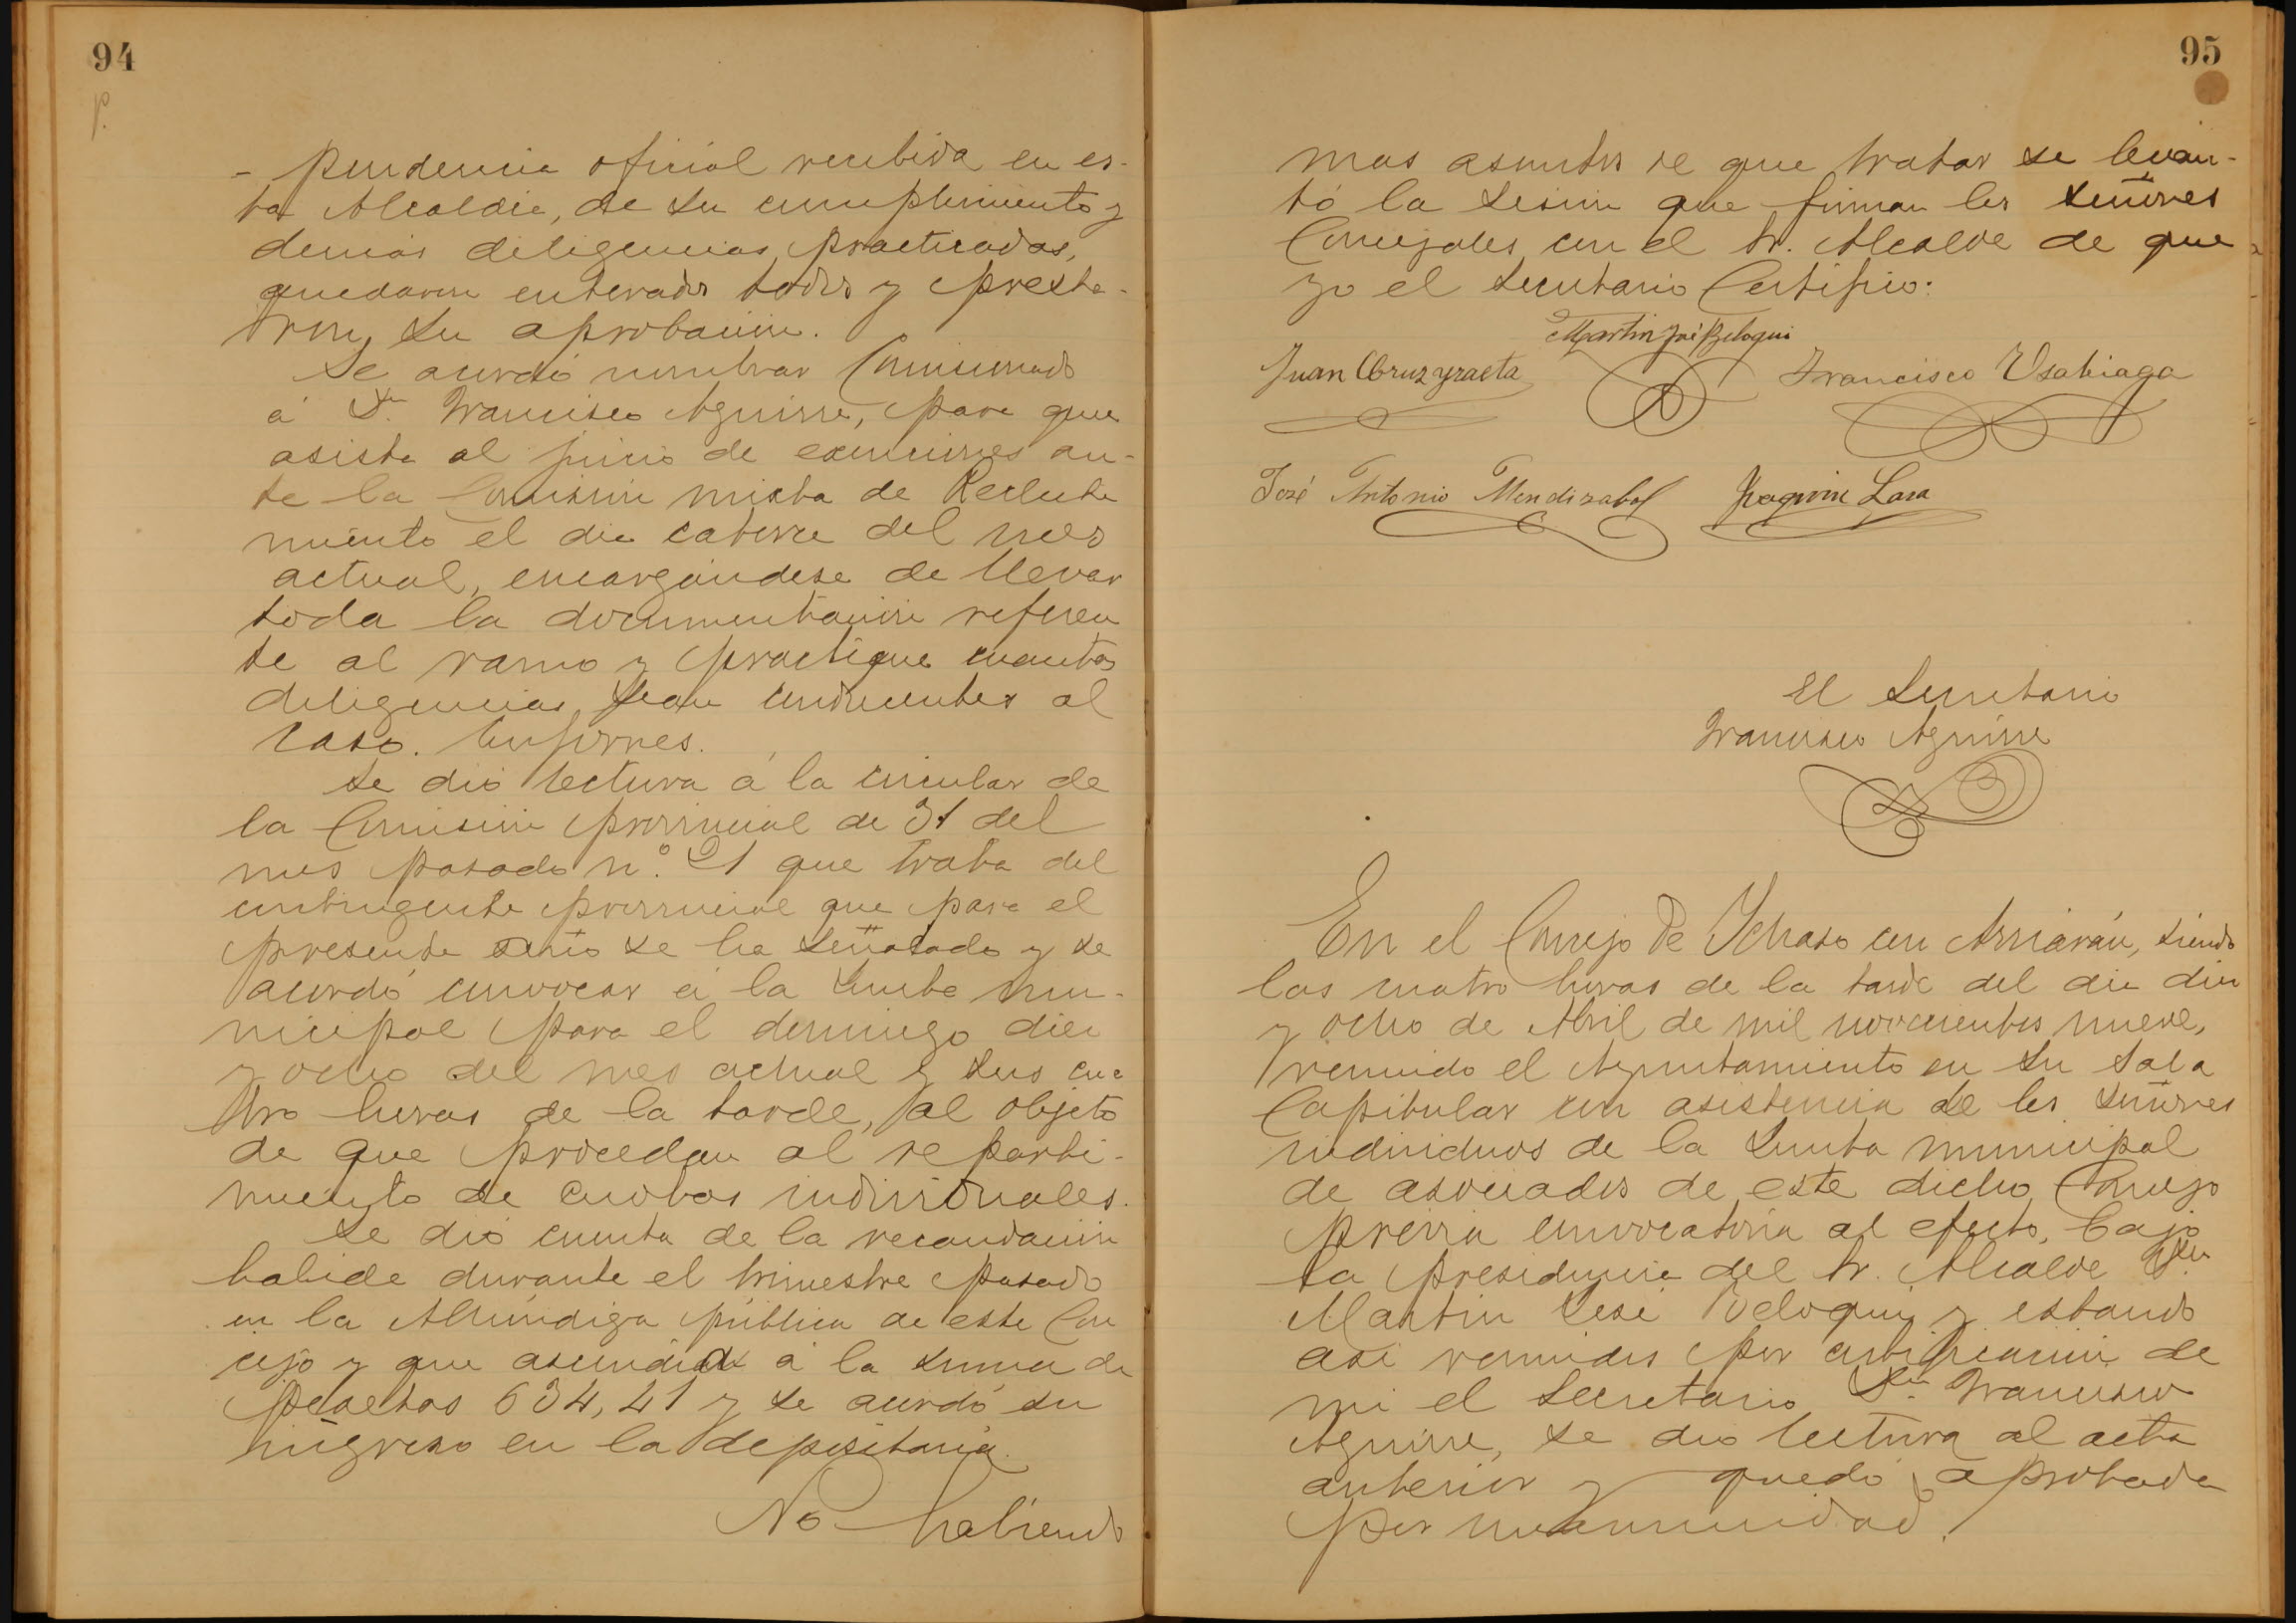 94
P.
- pendencia oficial recibida en es-
ta Alcaldia, de su cumplimiento y
demás diligencias practicadas,
quedaron enterados todos y presta-
ron su aprobación.
Se acordó nombrar Comisionado
á Dn. Francisco Aguirre, para que
asista al juicio de exenciones an-
te la Comisión mixta de Recluta
miento el dia catorce del mes
actual, encargándose de llevar
toda la documentación referen
te al ramo y practique cuantas
diligencias sean conducentes al
caso. Conformes.
Se dió lectura á la circular de
la Comisión provincial de 31 del
mes pasado n.º 21 que trata del
contingente provincial que para el
presente año se ha señalado y se
acordó convocar á la Junta mu-
nicipal para el domingo diez
y ocho del mes actual y sus cua
tro horas de la tarde, al objeto
de que procedan al reparti-
miento de cuotas individuales.
Se dió cuenta de la recaudación
habida durante el trimestre pasado
en la Alhóndiga pública de este Con
cejo y que asciende á la suma de
pesetas 634,41 y se acordó su
ingreso en la depositaria.
No habiendo
95
mas asuntos de que tratar se levan-
tó la sesión que firman los señores
Concejales con el Sr. Alcalde de que
yo el Secretario Certifico:
Martin José Beloqui
Juan Cruz Yraeta
Francisco Usabiaga
José Antonio Mendizabal
Joaquin Lasa
El Secretario
Francisco Aguirre
En el Concejo de Ichaso con Arriarán, siendo
las cuatro horas de la tarde del dia diez
y ocho de Abril de mil novecientos nueve,
reunido el Ayuntamiento en su Sala
Capitular con asistencia de los señores
individuos de la Junta municipal
de asociados de este dicho Concejo
previa convocatoria al efecto, bajo
la presidencia del Sr. Alcalde Dn
Martin José Beloqui y estando
asi reunidos por certificación de
mi el Secretario Dn. Francisco
Aguirre, se dió lectura al acta
anterior y quedó aprobada
por unanimidad.